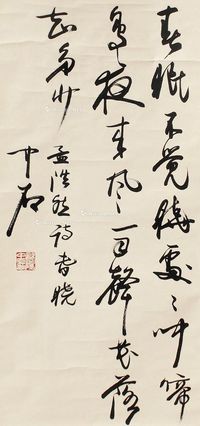 春眠不觉曉处々叫啼
鸟夜来风雨聲花落
知多少
孟浩然诗春晓
中石